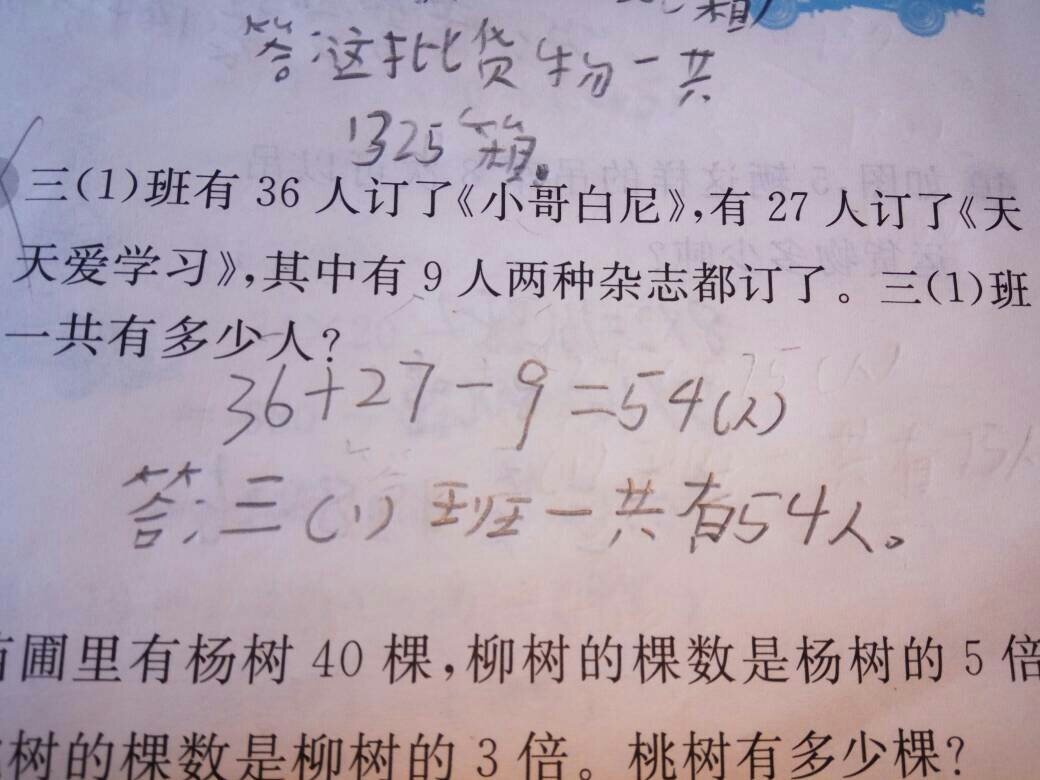 箱)
答:这批货物一共
1325箱。
三(1)班有 36 人订了《小哥白尼》,有 27 人订了《天
天爱学习》,其中有 9 人两种杂志都订了。三(1)班
一共有多少人?
36+27-9=54(人)
答:三(1)班一共有54人。
圃里有杨树 40 棵,柳树的棵数是杨树的 5 倍
树的棵数是柳树的 3 倍。桃树有多少棵?